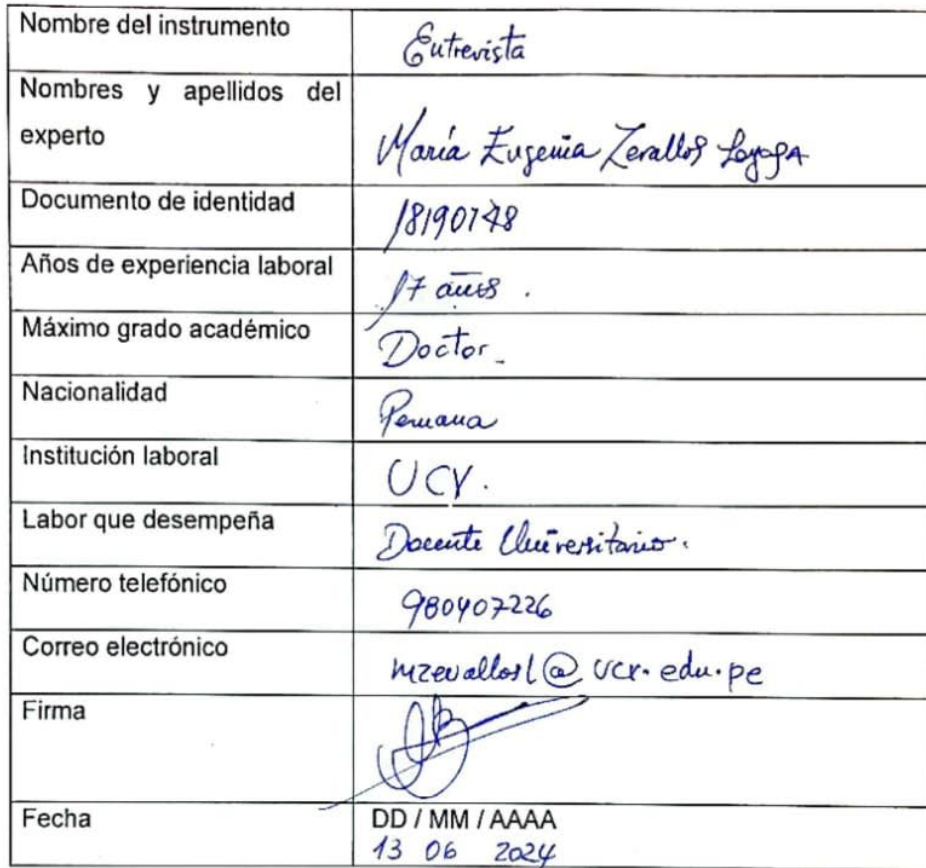 Nombre del instrumento
Entrevista
Nombres y apellidos del
experto
María Eugenia Zevallos Loyaga
Documento de identidad
18190178
Años de experiencia laboral
17 años.
Máximo grado académico
Doctor
Nacionalidad
Peruana
Institución laboral
UCV.
Labor que desempeña
Docente Universitario.
Número telefónico
980407226
Correo electrónico
mzevallosl@ucv.edu.pe
Firma
Fecha
DD / MM / AAAA
13 06 2024